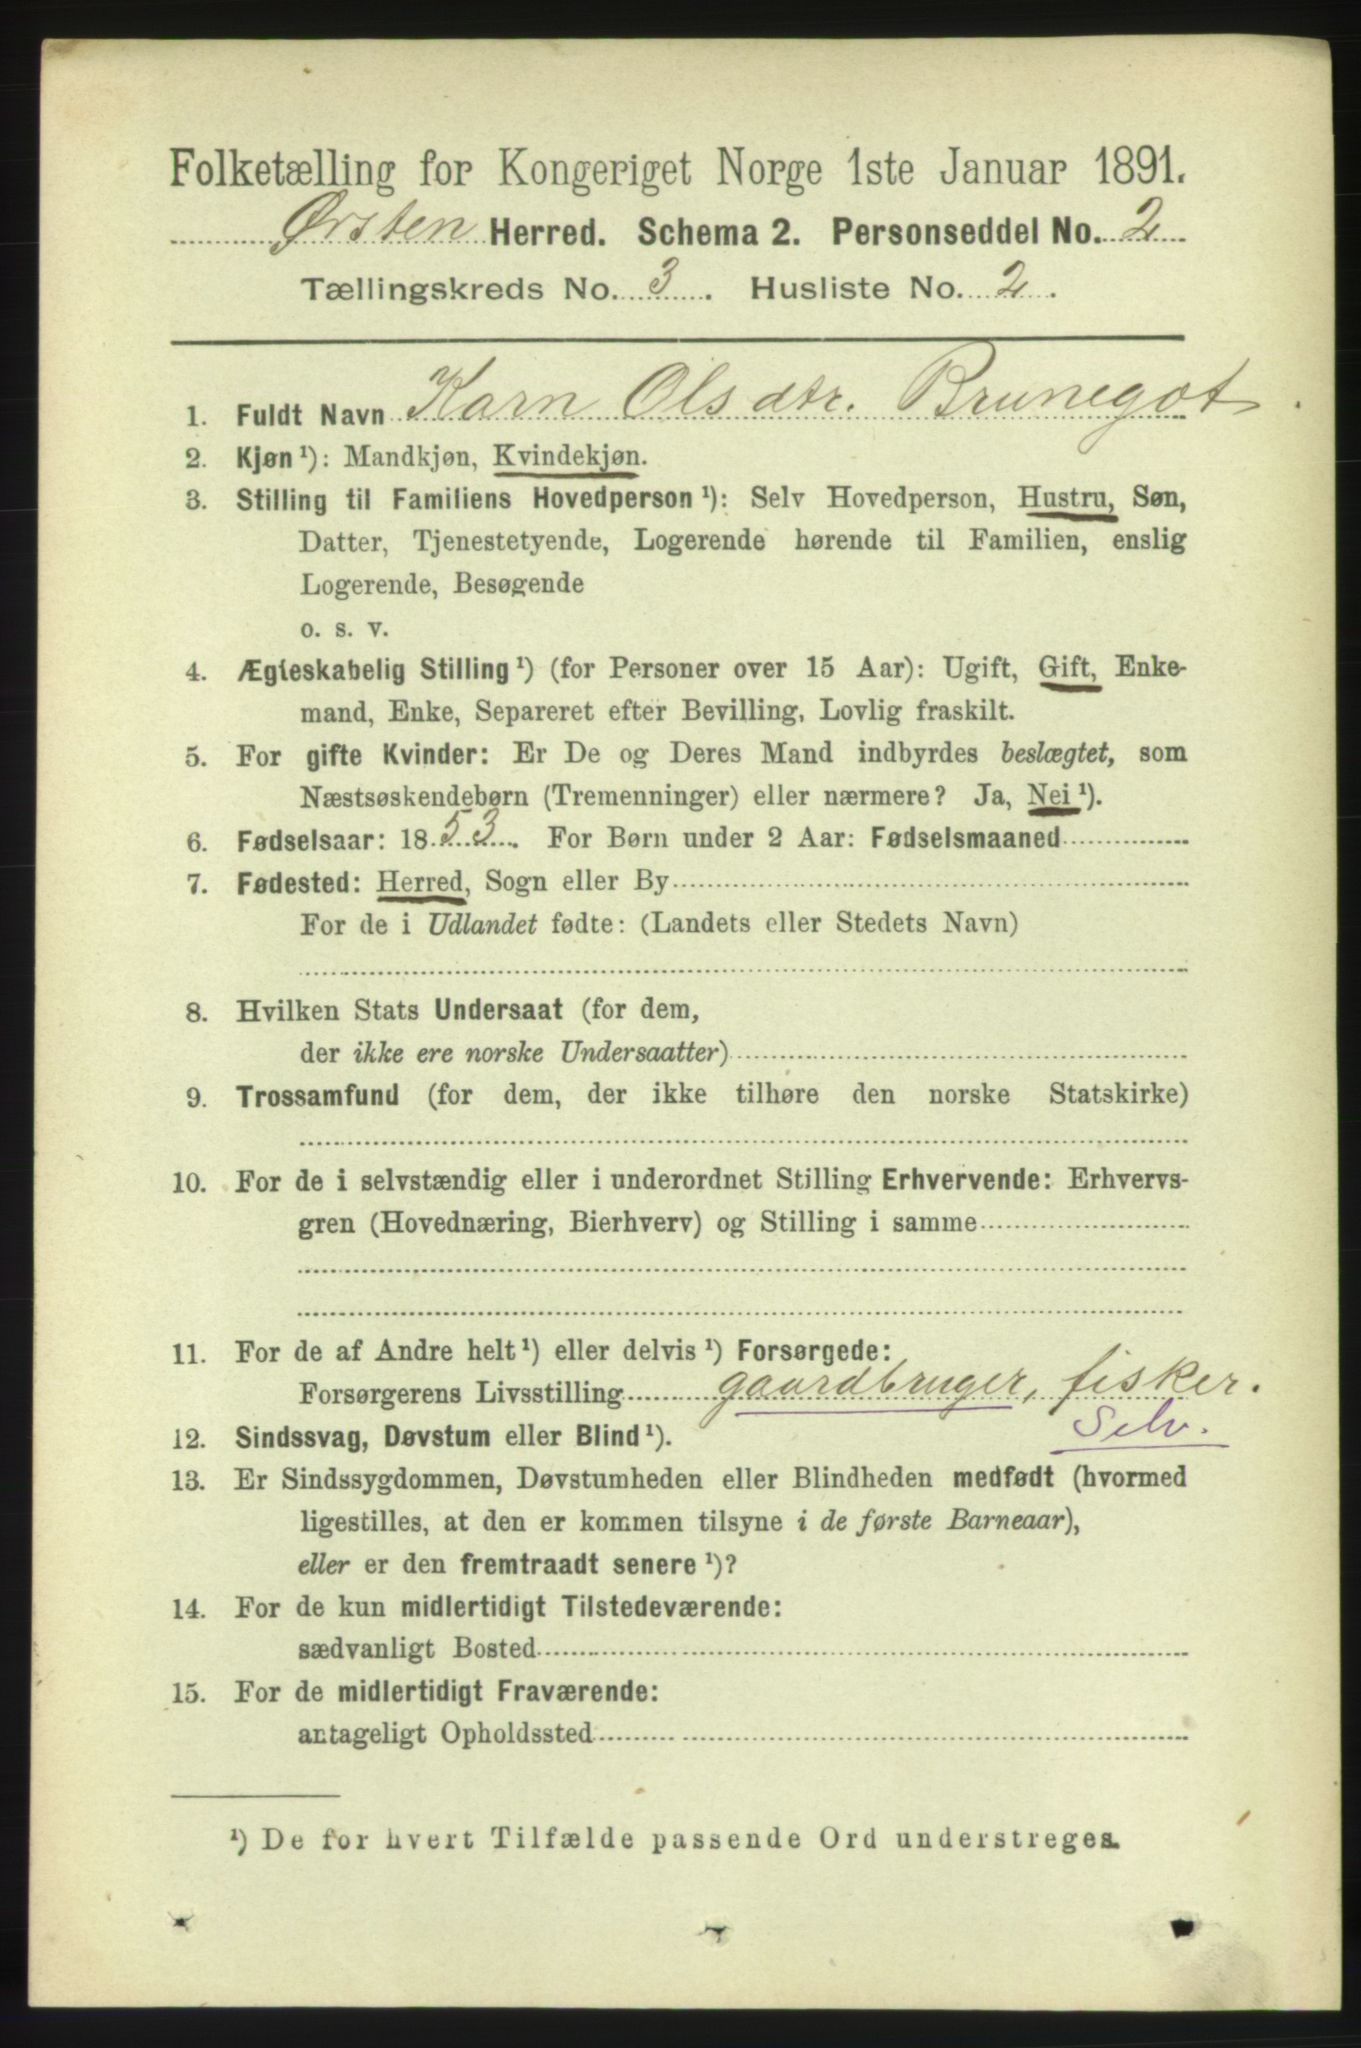 Folketælling for Kongeriget Norge 1ste Januar 1891.
Ørsten Herred. Schema 2. Personseddel No. 2
Tællingskreds No. 3. Husliste No. 2.
1. Fuldt Navn Karn Olsdtr. Brunegot.
2. Kjøn ¹): Mandkjøn, Kvindekjøn.
3. Stilling til Familiens Hovedperson ¹): Selv Hovedperson, Hustru, Søn,
Datter, Tjenestetyende, Logerende hørende til Familien, enslig
Logerende, Besøgende
o. s. v.
4. Ægteskabelig Stilling ¹) (for Personer over 15 Aar): Ugift, Gift, Enke-
mand, Enke, Separeret efter Bevilling, Lovlig fraskilt.
5. For gifte Kvinder: Er De og Deres Mand indbyrdes beslægtet, som
Næstsøskendebørn (Tremenninger) eller nærmere? Ja, Nei ¹).
6. Fødselsaar: 1853. For Børn under 2 Aar: Fødselsmaaned
7. Fødested: Herred, Sogn eller By
For de i Udlandet fødte: (Landets eller Stedets Navn)
8. Hvilken Stats Undersaat (for dem,
der ikke ere norske Undersaatter)
9. Trossamfund (for dem, der ikke tilhøre den norske Statskirke)
10. For de i selvstændig eller i underordnet Stilling Erhvervende: Erhvervs-
gren (Hovednæring, Bierhverv) og Stilling i samme
11. For de af Andre helt ¹) eller delvis ¹) Forsørgede:
Forsørgerens Livsstilling gaardbruger, fisker.
Selv.
12. Sindssvag, Døvstum eller Blind ¹).
13. Er Sindssygdommen, Døvstumheden eller Blindheden medfødt (hvormed
ligestilles, at den er kommen tilsyne i de første Barneaar),
eller er den fremtraadt senere ¹)?
14. For de kun midlertidigt Tilstedeværende:
sædvanligt Bosted
15. For de midlertidigt Fraværende:
antageligt Opholdssted
¹) De for hvert Tilfælde passende Ord understreges.